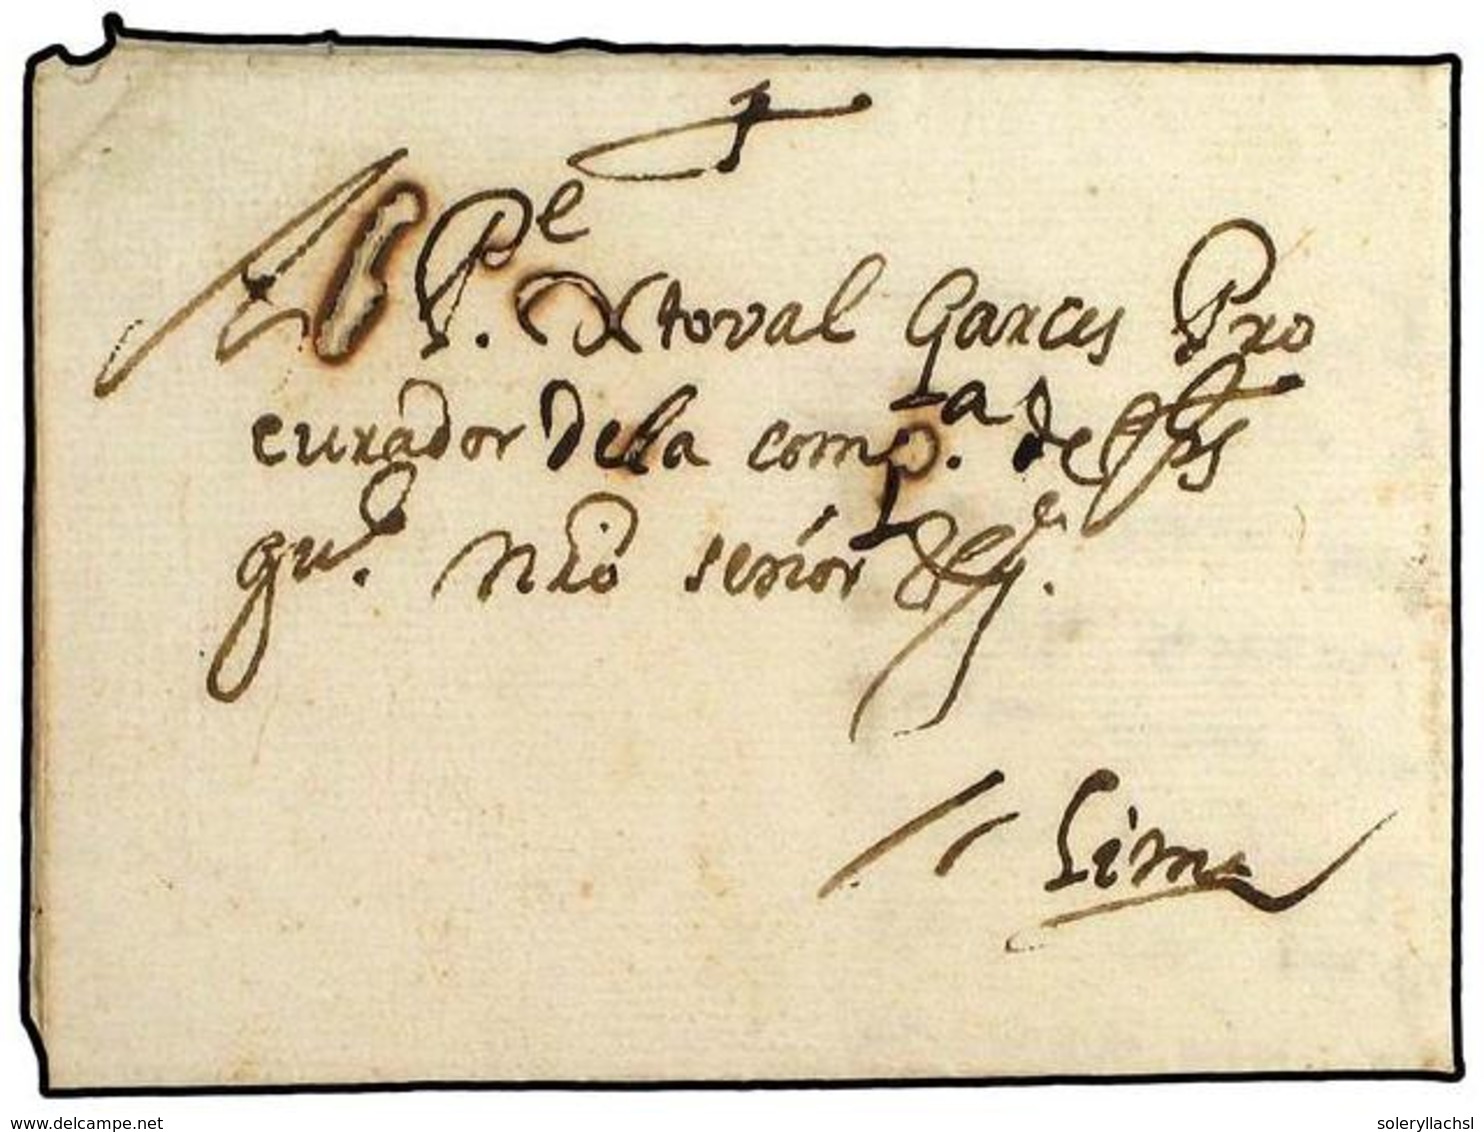 Al Pe. Xtoval Garces Pro
curador de la compa. de Jhs
gue. nro señor
Lima
www.delcampe.net
soleryllachsl